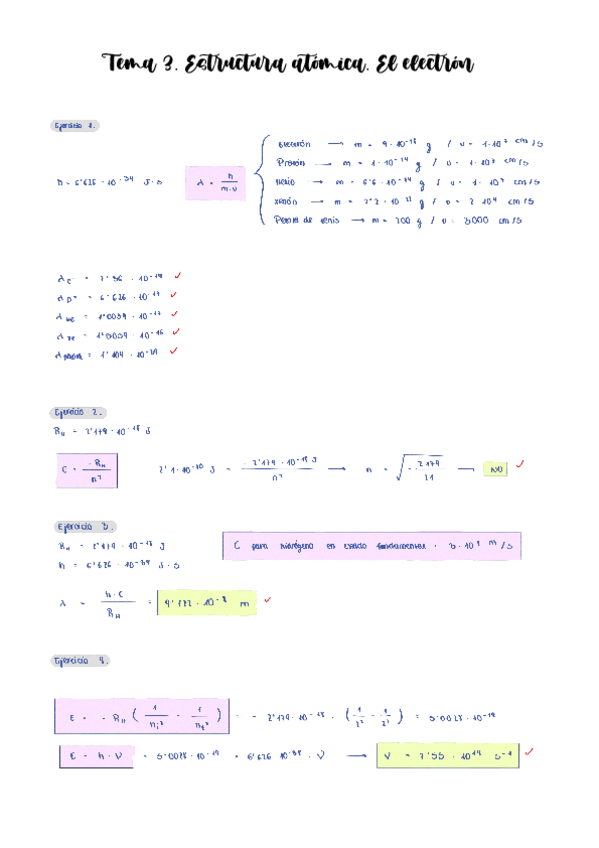 Tema 3. Estructura atómica. El electrón
Ejercicio 1.
Electrón → m = 9·10⁻²⁸ g / v = 1·10⁷ cm/s
Protón → m = 1·10⁻²⁴ g / v = 1·10⁷ cm/s
h = 6'626·10⁻³⁴ J·s λ = h / m·v Helio → m = 6'6·10⁻²⁴ g / v = 1·10⁷ cm/s
xenón → m = 2'2·10⁻²² g / v = 2 10⁴ cm/s
Pelota de tenis → m = 200 g / v = 3000 cm/s
λ e⁻ = 7'36·10⁻¹⁹ ✓
λ p⁺ = 6'626·10⁻¹⁷ ✓
λ He = 1'0039·10⁻¹⁷ ✓
λ xe = 1'5059·10⁻¹⁶ ✓
λ = 1'104·10⁻³⁹ ✓
Ejercicio 2.
R_H = 2'179·10⁻¹⁸ J
E = -R_H / n² 2'1·10⁻²⁰ J = -2'179·10⁻¹⁸ J / n² → n = √(-2179 / 21) → NO ✓
Ejercicio 3.
R_H = 2'179·10⁻¹⁸ J C para hidrógeno en estado fundamental = 3·10⁸ m/s
h = 6'626·10⁻³⁴ J·s
λ = h·C / R_H = 9'122·10⁻⁸ m ✓
Ejercicio 4.
E = -R_H (1/n_i² - 1/n_f²) = -2'179·10⁻¹⁸ · (1/2² - 1/3²) = 5'0028·10⁻¹⁹
E = h·ν = 5'0028·10⁻¹⁹ = 6'626 10⁻³⁴·ν → ν = 7'55·10¹⁴ s⁻¹ ✓